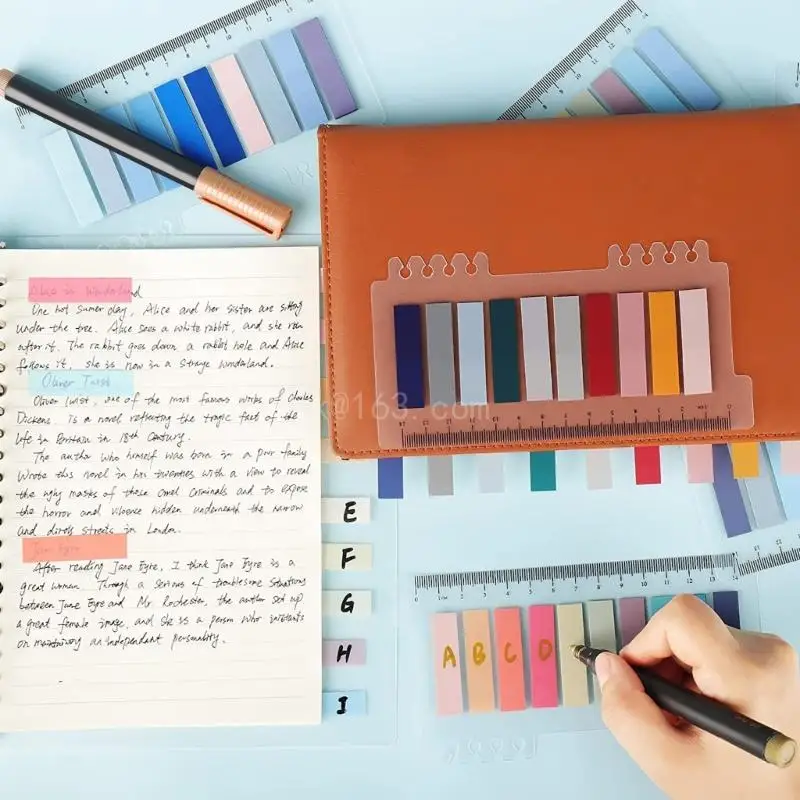 Alice in Wonderland
One hot sumer day, Alice and her sister are sitting
under the tree. Alice sees a white rabbit, and she run
after it. The rabbit goes down a rabbit hole and Alice
follows it, she is now in a strange wonderland.
Oliver Twist
Oliver Twist, one of the most famous works of Charles
Dickens, is a novel reflecting the tragic fact of the
life in Britain in 18th Century.
The author who himself was born in a poor family
Wrote this novel in his twenties with a view to reveal
the ugly masks of those cruel criminals and to expose
the horror and vilence hidden underneath the narrow
and dirty streets in London.
Jane Eyre
After reading Jane Eyre, I think Jane Eyre is a
great woman. Through a serious of troublesome situations
between Jane Eyre and Mr Rochester, the author set up
a great female image, and she is a person who insistants
on maintaining an independant personality.
E
F
G
H
I
k@163.com
A B C D